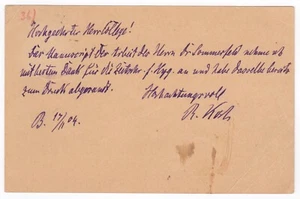 36)
Hochgeehrter Herr College!
Das Manuscript der Arbeit des Herrn Dr Sommerfeld nehme ich
mit bestem Dank für die Zeitschr. f. Hyg. an und habe dasselbe bereits
zum Druck abgesandt.
Hochachtungsvoll
R. Koch
B. 17/ 04.